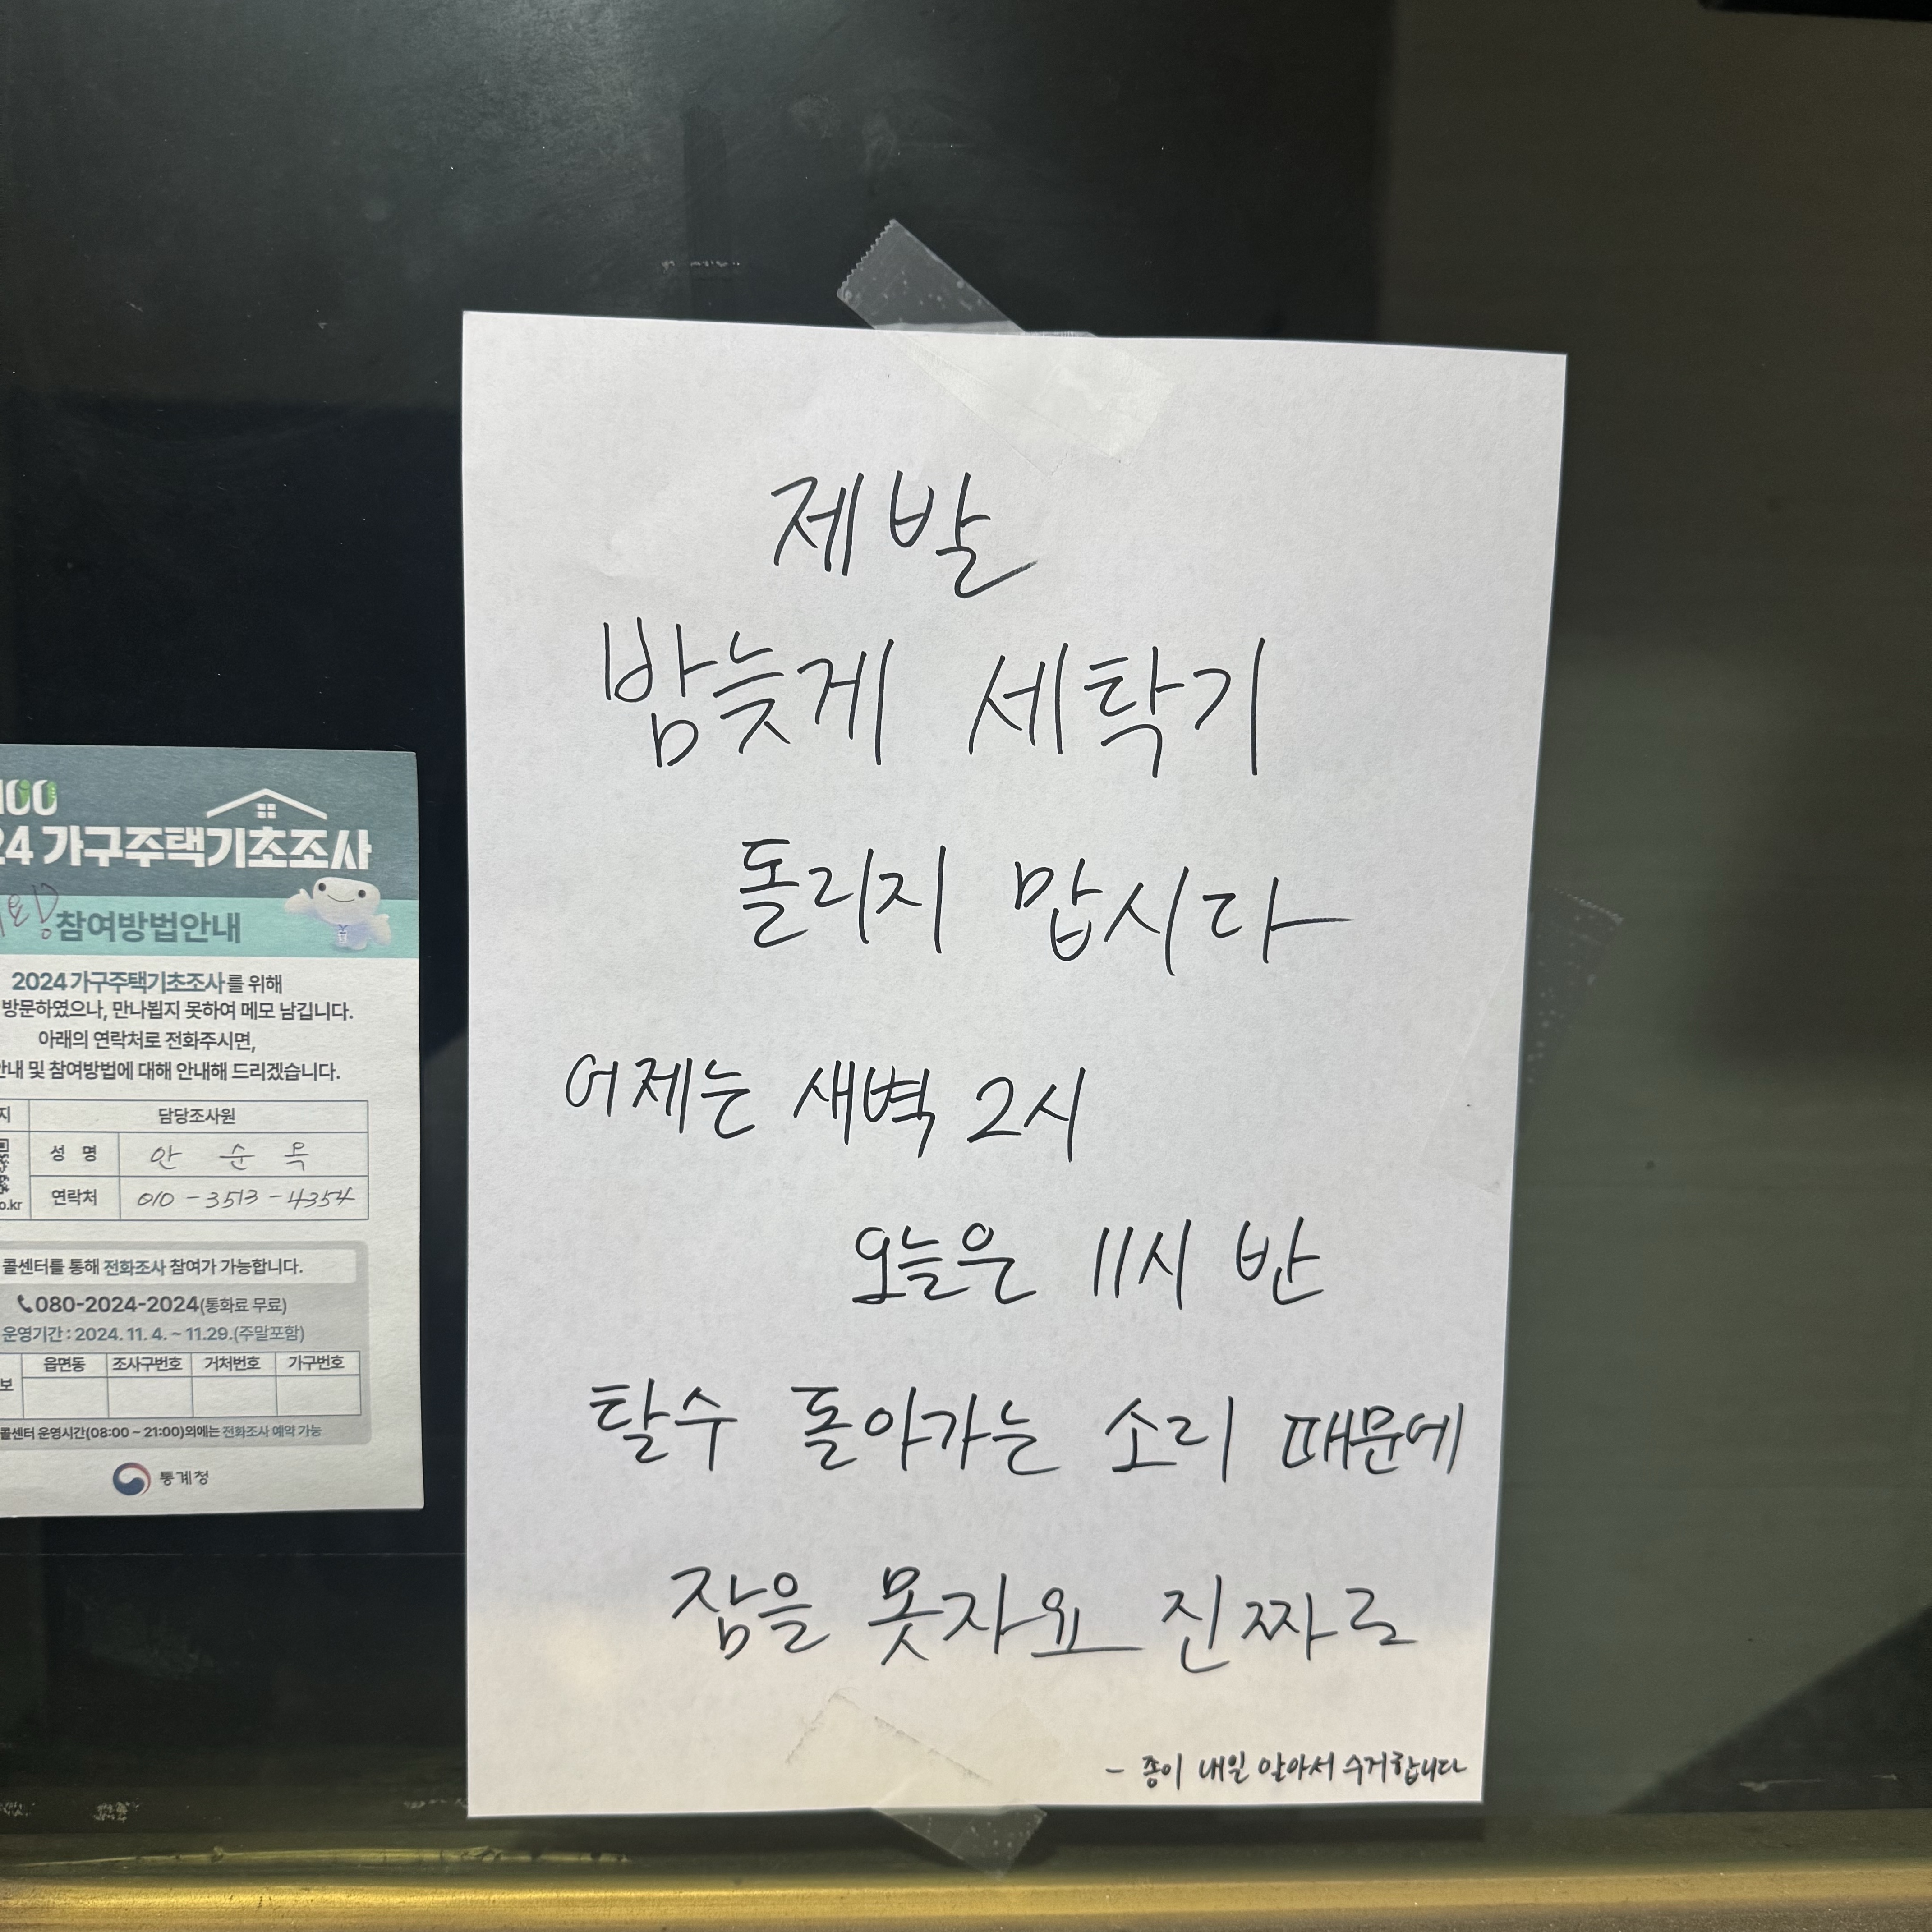 제발
밤늦게 세탁기
돌리지 맙시다
어제는 새벽 2시
오늘은 11시 반
탈수 돌아가는 소리 때문에
잠을 못자요 진짜로
- 종이 내일 알아서 수거합니다
100
24 가구주택기초조사
참여방법안내
2024 가구주택기초조사를 위해
방문하였으나, 만나뵙지 못하여 메모 남깁니다.
아래의 연락처로 전화주시면,
안내 및 참여방법에 대해 안내해 드리겠습니다.
지 담당조사원
성 명 안 순 옥
o.kr 연락처 010-3513-4354
콜센터를 통해 전화조사 참여가 가능합니다.
080-2024-2024(통화료 무료)
운영기간 : 2024. 11. 4. ~ 11.29.(주말포함)
읍면동 조사구번호 거처번호 가구번호
보
콜센터 운영시간(08:00 ~ 21:00)외에는 전화조사 예약 가능
통계청